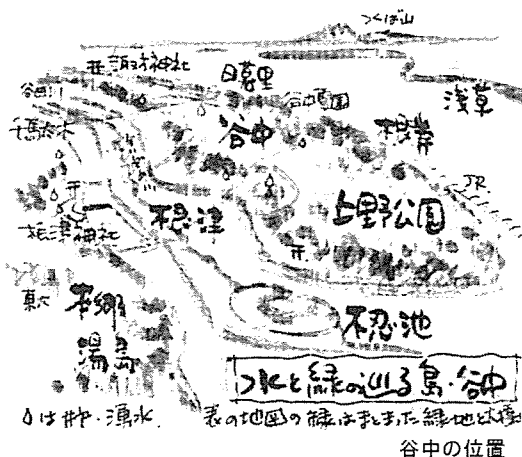 つくば山
諏訪神社
日暮里
浅草
谷田川
谷中
根岸
千駄木
JR
根津
上野公園
根津神社
東大
本郷
湯島
不忍池
水と緑の辿る島・谷中
は井戸・湧水
表の地図の緑はまとまった緑地と
谷中の位置